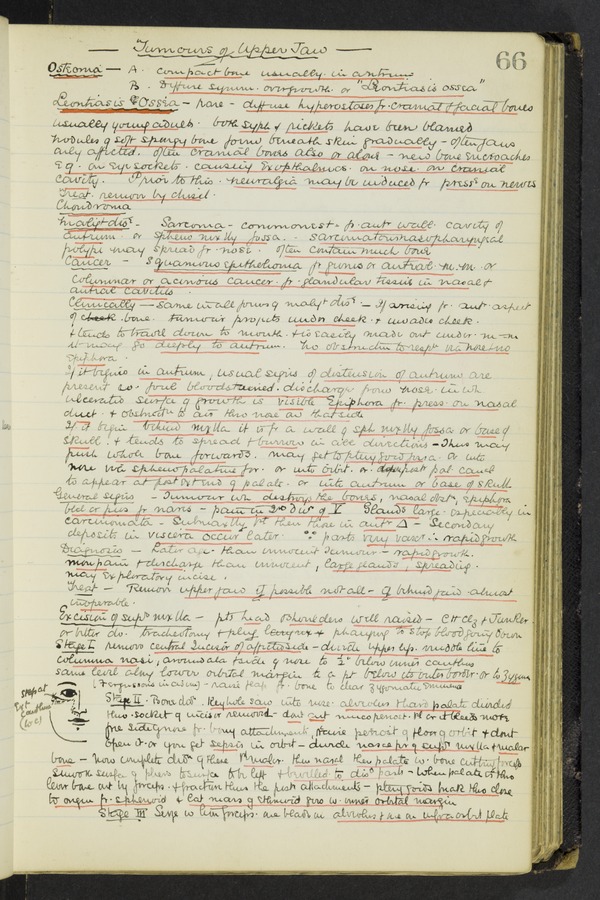 66
Tumours of Upper Jaw
Osteoma - A. compact bone usually in antrum
B. Diffuse symm. overgrowth or "Leontiasis ossea"
Leontiasis Ossea - rare - diffuse hyperostoses fr. cranial & facial bones
usually young adults. both syph & rickets have been blamed
nodules of soft spongy bone form beneath skin gradually - often jaws
only affected. often cranial bones also or alone - new bone encroaches
Eg. on eye sockets causing Exophthalmos. on nose. on cranial
cavity. Prior to this. neuralgia may be induced fr press. on nerves
Treat. remove by chisel.
Chondroma
Malignt disе - Sarcoma - commonest - fr. antr wall. cavity of
antrum or spheno mxlly fossa. - sarcomatous nasopharyngeal
polypi may spread fr. nose. often contain much bone
Cancer - Squamous epithelioma fr gums or antral m.m. or
columnar or acinous cancer fr. glandular tissues in nasal &
antral cavities
Clinically - same in all forms of malgt dise - if arising fr. ant aspect
of bone. tumour projects under cheek & invades cheek.
& tends to travel down to mouth & is easily made out under m-m
it may go deeply to antrum. No obstruction to respn via nose no
epiphora.
If it begins in antrum, usual signs of distension of antrum are
present eg. foul bloodstained discharge from nose in wh
ulcerated surface of growth is visible Epiphora fr. press. on nasal
duct. & obstruction to air thro nose on that side
If it begin behind mxlla it is fr a wall of sph mxlly fossa or base of
skull. & tends to spread & burrow in all directions - Thus may
push whole bone forwards. may get to pterygoid fossa. or into
nose via sphenopalatine for. or into orbit. or post pal canal
to appear at post extend of palate. or into antrum or base of skull
General signs - Tumour wh destroys the bones, nasal obstn, epiphora
bld or pus fr nares - pain in 2nd Div of V Glands large especially in
carcinomata - Submaxlly 1st then those in antr Δ - Secondary
deposits in viscera occur later. ∵ parts very vascr ∴ rapid growth
Diagnosis - Later age than innocent tumour - rapid growth.
more pain & discharge than innocent, large glands, spreading.
may Exploratory incise.
Treat - Remove upper jaw if possible not all - if behind jaw almost
inoperable.
Excision of supr mxlla - pts head & shoulders well raised - CHCl3 & Junker
or bitter do. tracheotomy & plug larynx & pharynx to stop blood going down
Stage I remove central Incisor of affected side - divide upper lip. middle line to
columna nasi, around ala & side of nose to ½" below inner canthus
same level along lower orbital margin to a pt below its outer border. or to zygoma
(Fergusson's incision) - raise flap fr. bone to clear zygomatic eminence
Stop at
Ext
Canthus
Stage II. Bone divd. Keyhole saw into nose: alveolus & hard palate divided
thro socket of incisor removed - dont cut mucoperiost.
free side of nose fr. bony attachment, raise periost of floor of orbit & dont
open it. or you get sepsis in orbit - divide nasal pr of supr mxlla & malar
bone - Now complete divn of these 1st malar then nasal then palate w. bone cutting forceps
lever bone out by forceps & fracture thus the post attachments - pterygoids break thro close
to origin fr. sphenoid & lat mass of ethmoid goes w. inner orbital margin
Stage III Seize w lion forceps. one blade on alveolus & one on infraorbit plate